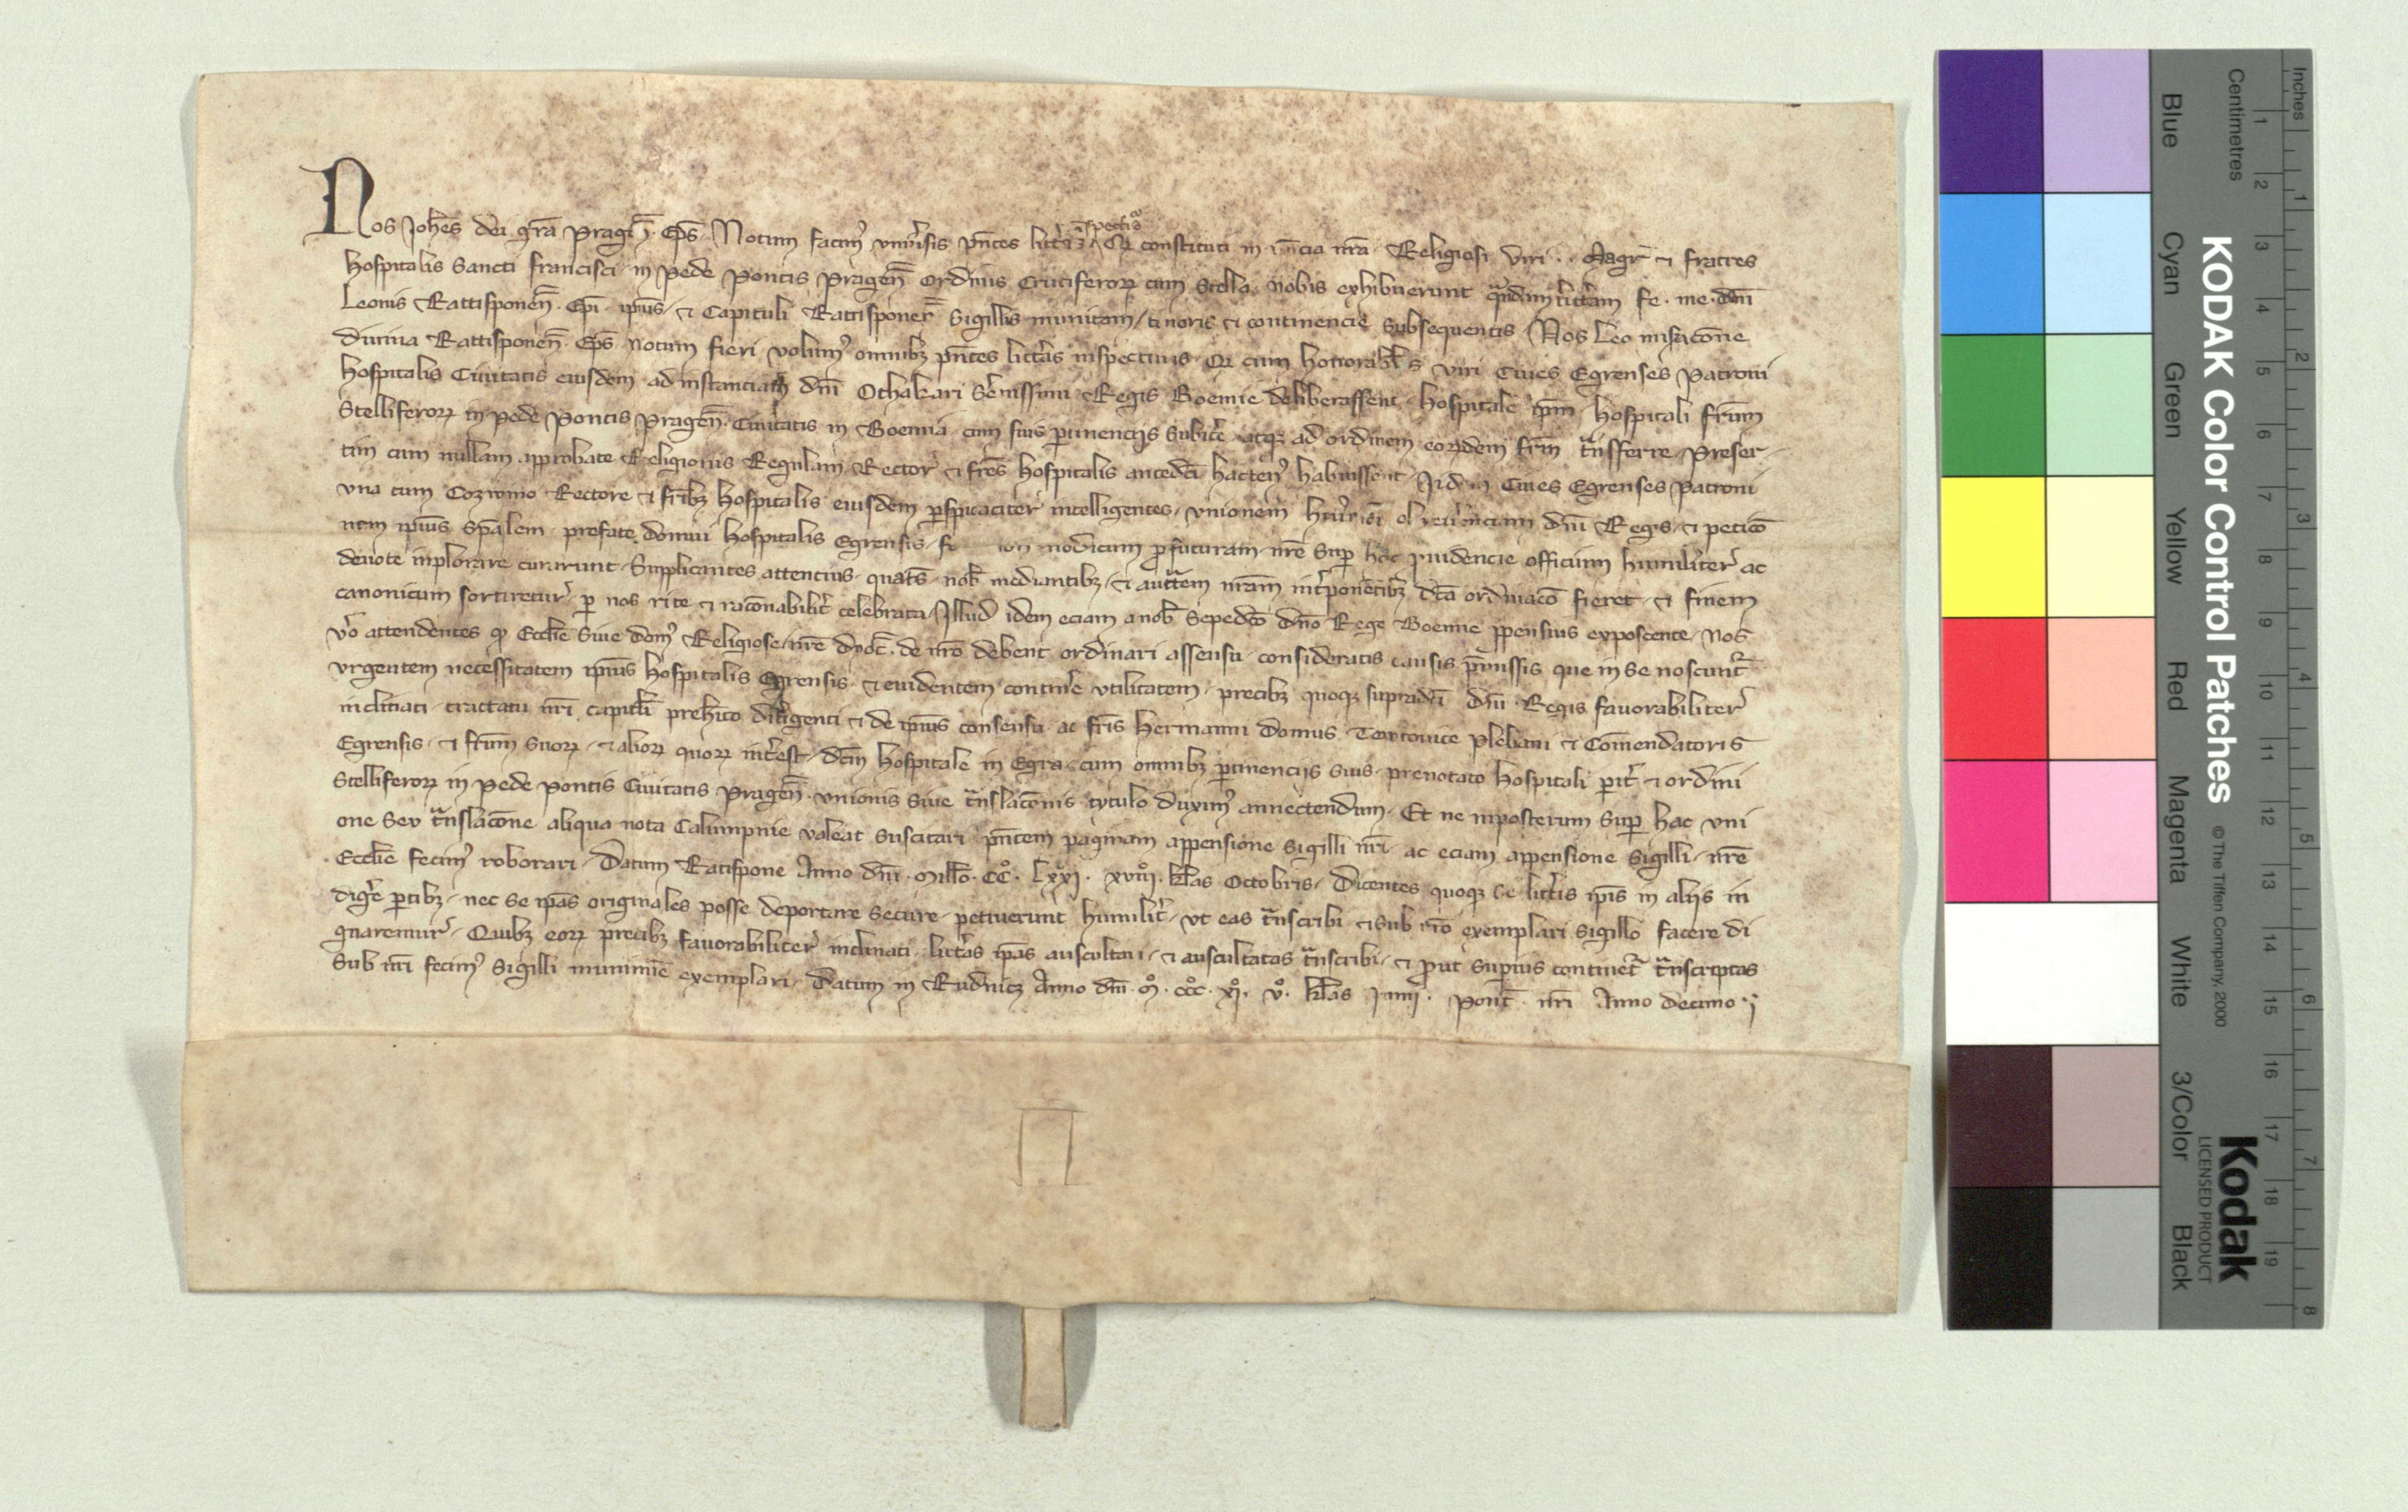 Nos Joh̄es dei gr̄a Pragen̄ Ep̄s Notum facim⁹ vniu̓sis p̄ntes litt̓as īspectur̓ Qꝫ constituti in n̄ra Religiosi viri .. Magr̄ et fratres
hospitalis Sancti francisci in pede pontis pragen̄ ordinis Cruciferorꝝ cum Stella nobis exhibuerunt quandam litt̓am fe. me. dn̄i
Leonis Rattisponen̄. Ep̄i ip̄ius et Capituli Rattisponen̄ Sigillis munitam tenoris et continencie Subsequentis Nos Leo mis̓acōne
diuina Rattisponen̄. Ep̄s notum fieri volum⁹ omnibꝫ p̄ntes litt̓as inspecturis Qꝫ cum honorabiles viri Ciues Egrenses patroni
hospitalis Ciuitatis eiusdem ad instanciam dn̄i Othakari Ser̓nissimi Regis Boemie deliberassent hospitale ip̄m hospitali fr̄um
Stelliferorꝝ in pede pontis pragen̄. Ciuitatis in Boemia cum suis ꝑtinencijs Subic̓e atqꝫ ad ordinem eorꝝdem fr̄m t̄nsferre preser
tim cum nullam approbate Religionis Regulam Rector et fr̄es hospitalis antedc̄i hacten⁹ habuissent Jidem Ciues Egrenses patroni
vna cum Rectore et fr̄ibꝫ hospitalis eiusdem ꝑspicaciter intelligentes vnionem ob reu̓enciam dn̄i Regis et peticō
nem ip̄ius Sp̄alem prefate domui hospitalis Egrensis non modicum ꝓfuturam nr̄e Suꝑ hac prudencie officium humilit̓er ac
deuote inplorare curarunt Supplicantes attencius quat̄s nob̄ mediantibꝫ et auct̄em nr̄am int̓ponentibꝫ dc̄a ordinacō fieret et finem
canonicum sortiretur ꝑ nos rite et rac̄onabilit̓ celebrata Illud idem eciam a nob̄ Sepedc̄o dn̄o Rege Boemie ꝓpensius exposcente Nos
v̓o attendentes qꝫ Eccl̄ie Siue dom⁹ Religiose nr̄e dyoc̄. de nr̄o debent ordinari assensu consideratis causis p̄missis que in Se noscunt̓
vrgentem necessitatem ip̄ius hospitalis Egrensis et euidentem contin̓e vtilitatem precibꝫ quoqꝫ supradc̄i dn̄i Regis fauorabiliter
inclinati tractatu nr̄i capitl̄i preh̄ito diligenti et de ip̄ius consensu ac fr̄is Hermanni domus plebani et Com̄endatoris
Egrensis et fr̄um Suorꝝ et aliorꝝ quorꝝ int̓est dc̄m hospitale in Egra cum omnibꝫ ꝑtinencijs Suis prenotato hospitali parit̓ et ordini
Stelliferorꝝ in pede pontis Ciuitatis pragen̄. vnionis Siue t̄nslac̄onis tytulo duxim⁹ annectendum Et ne inposterum Suꝑ hac vni
one Seu t̄nslac̄one aliqua nota Calumpnie valeat Suscitari p̄ntem paginam appensione Sigilli nr̄i ac eciam appensione Sigilli nr̄e
Eccl̄ie fecim⁹ roborari Datum Ratispone Anno dn̄i Mill̄o. CC̊. Lxxi̊. xviii̊. kl̄as Octobris Dicentes quoqꝫ Se litt̓is ip̄is in alijs in
dig̓e ꝑtibꝫ nec Se ip̄as originales posse deportare Secure petiuerunt humilit̓ vt eas t̄nscribi et Sub nr̄o exemplari Sigillo facere di
gnaremur Quibꝫ eorꝝ precibꝫ fauorabiliter inclinati litt̓as ip̄as auscultari et auscultatas t̄nscribi et ꝓut Suꝑius continet̓ t̄nscriptas
Sub nr̄i fecim⁹ Sigilli munimīe exemplari Datum in Rudnicz Anno dn̄i. M̊. CCC̊. xi̊. v̊. kl̄as Junij. Pont̄. nr̄i Anno decimo
KODAK Color Control Patches © The Tiffen Company, 2000
Kodak
LICENSED PRODUCT
Inches 1 2 3 4 5 6 7 8
Centimetres 1 2 3 4 5 6 7 8 9 10 11 12 13 14 15 16 17 18 19
Blue Cyan Green Yellow Red Magenta White 3/Color Black